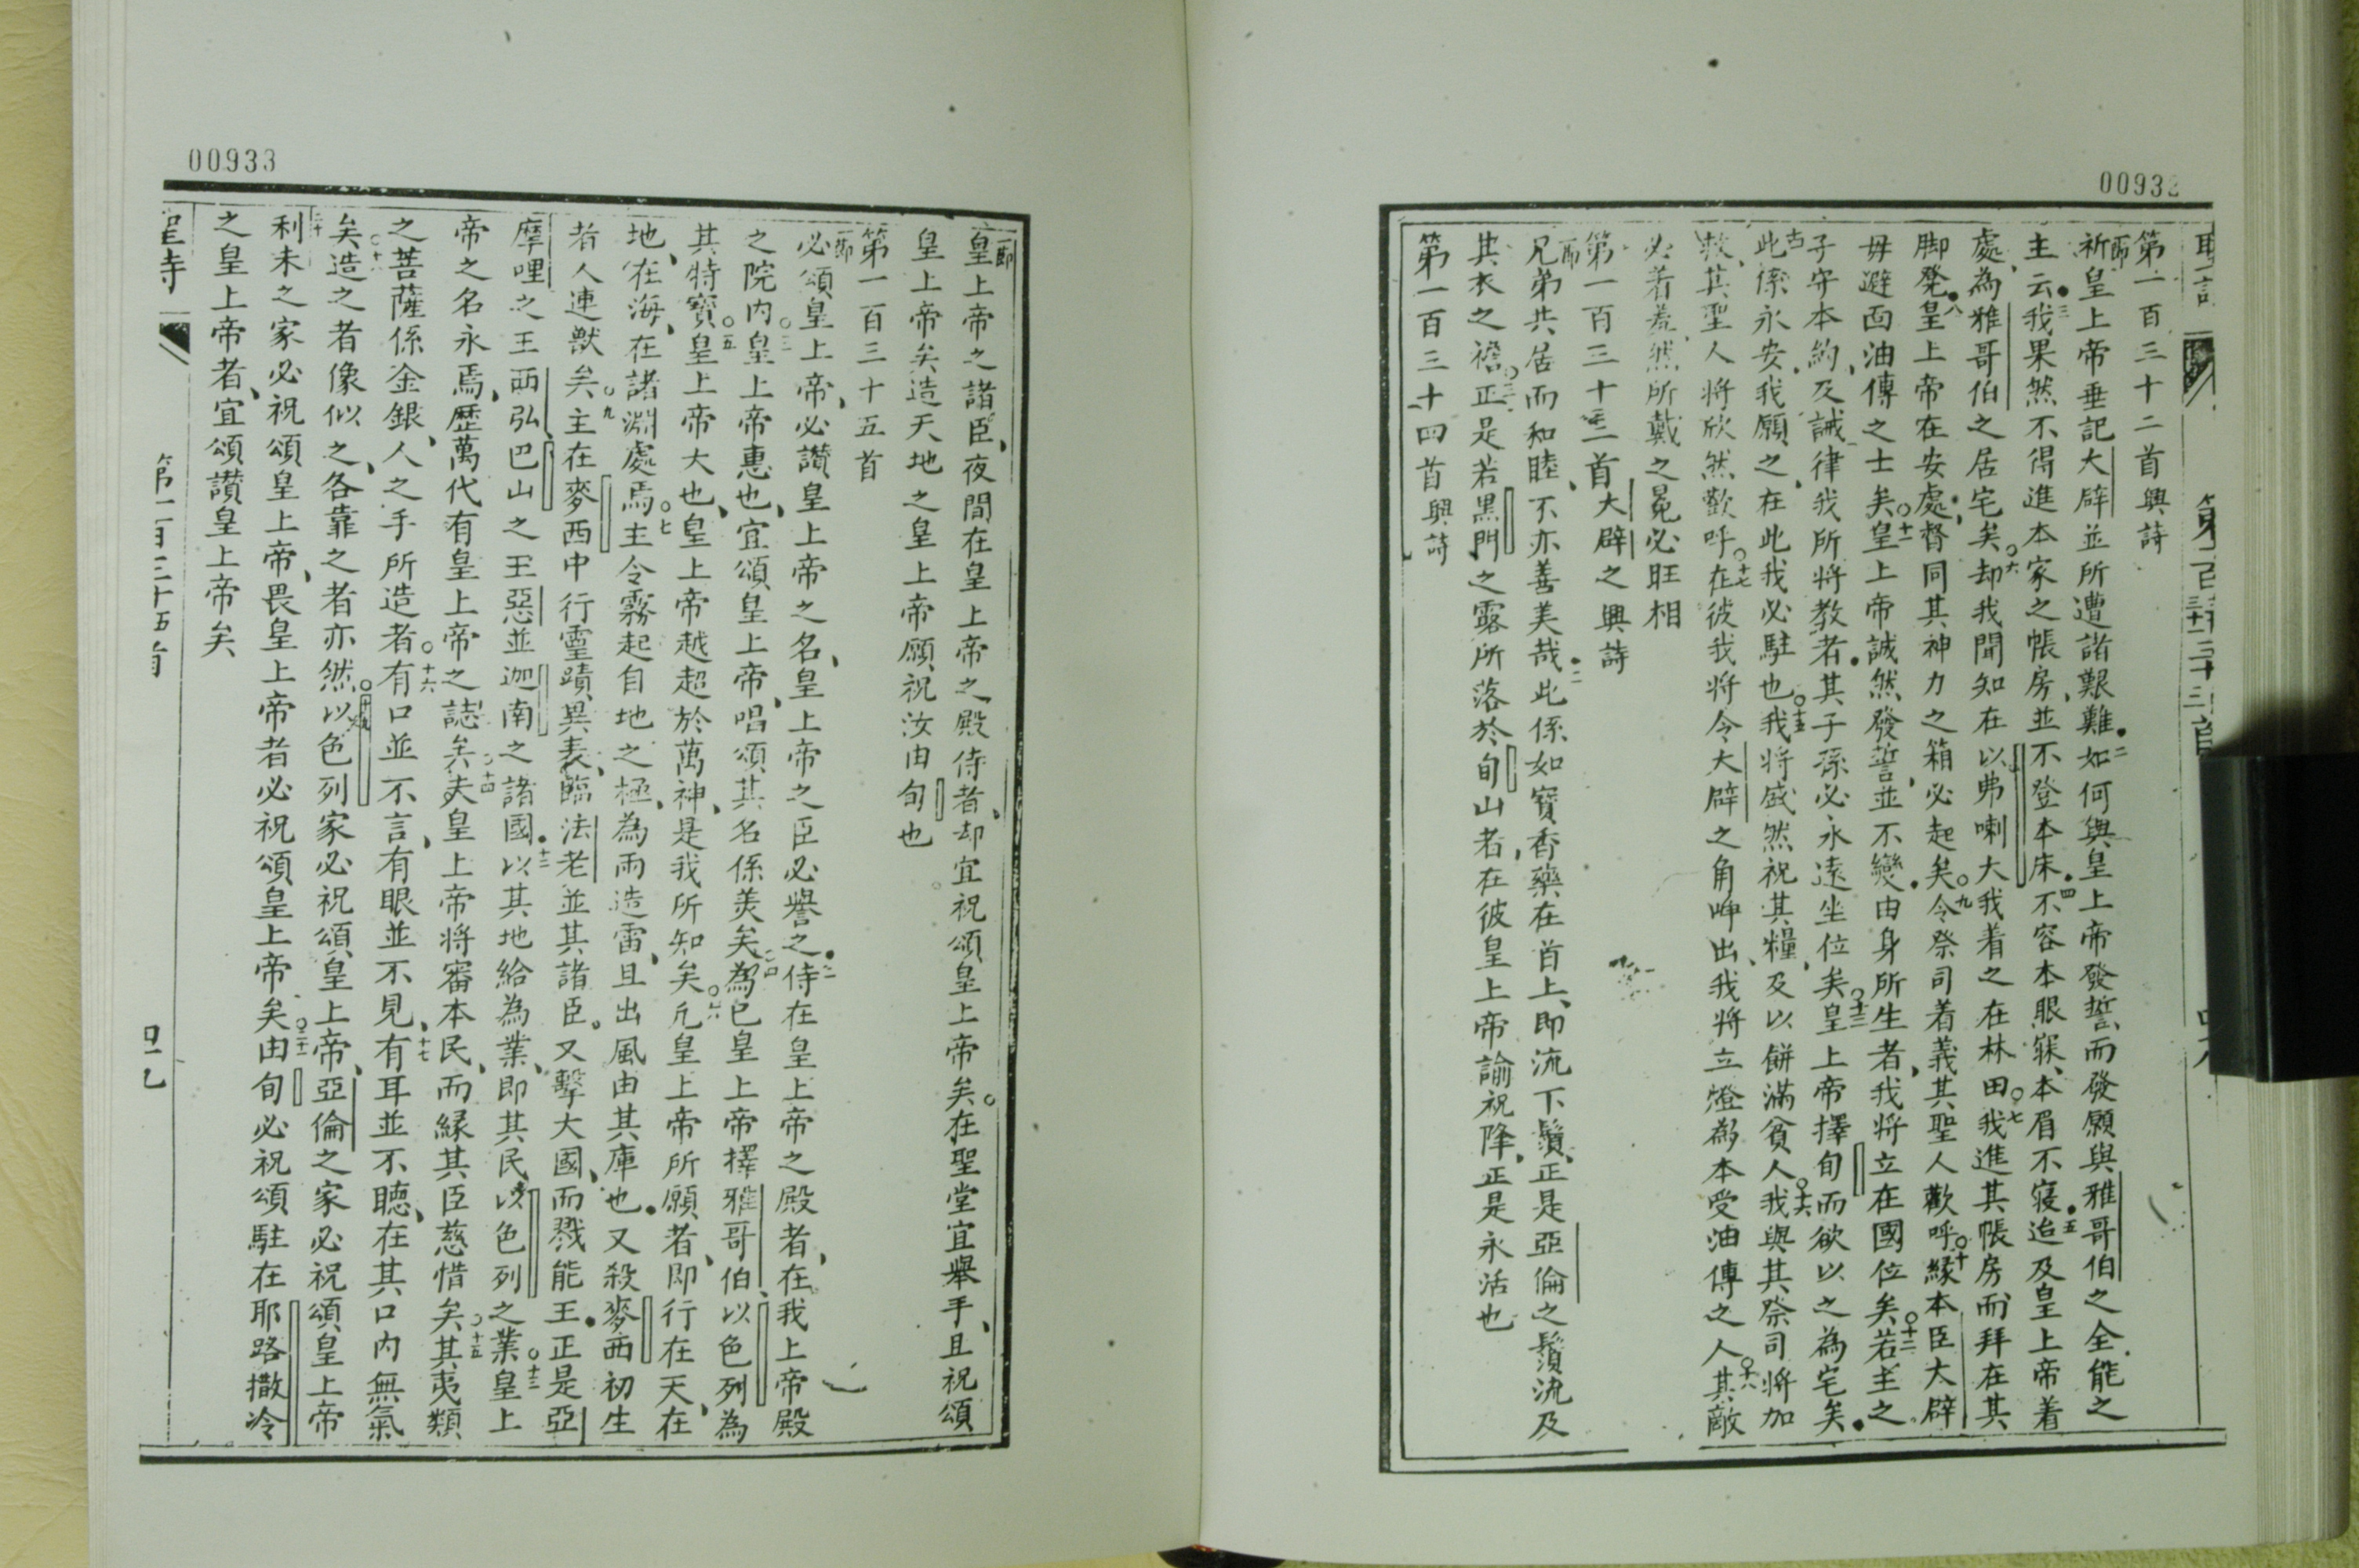 00932
第一百三十二首興詩
一節祈皇上帝垂記大辟並所遭諸艱難二如何與皇上帝發誓而發願與雅哥伯之全能之
主云三我果然不得進本家之帳房並不登本床四不容本眼寐本眉不寢五迨及皇上帝着
處為雅哥伯之居宅矣六却我聞知在以弗喇大我着之在林田七我進其帳房而拜在其
脚凳八皇上帝在安處督同其神力之箱必起矣九令祭司着義其聖人歡呼十緣本臣大辟
毋避面油傅之士矣十一皇上帝誠然發誓並不變由身所生者我將立在國位矣十二若主之
子守本約及誡律我所將教者其子孫必永遠坐位矣十三皇上帝擇旬而欲以之為宅矣
十四此係永安我願之在此我必駐也十五我將盛然祝其糧及以餅滿貧人十六我與其祭司將加
救其聖人將欣然歡呼十七在彼我將令大辟之角呻出我將立燈為本受油傅之人十八其敵
必着羞然所戴之冕必旺相
第一百三十三首大辟之興詩
一節兄弟共居而和睦不亦善美哉二此係如寶香藥在首上即流下鬚正是亞倫之鬚流及
其衣之襟三正是若黑門之露所落於旬山者在彼皇上帝諭祝降正是永活也
第一百三十四首興詩
00933
一節皇上帝之諸臣夜間在皇上帝之殿侍者却宜祝頌皇上帝矣在聖堂宜舉手且祝頌
皇上帝矣造天地之皇上帝願祝汝由旬也
第一百三十五首
一節必頌皇上帝必讚皇上帝之名皇上帝之臣必譽之二侍在皇上帝之殿者在我上帝殿
之院內三皇上帝惠也宜頌皇上帝唱頌其名係美矣四為已皇上帝擇雅哥伯以色列為
其特寶五皇上帝大也皇上帝越超於萬神是我所知矣六凢皇上帝所願者即行在天在
地在海在諸淵處焉七主令霧起自地之極為雨造雷且出風由其庫也又殺麥西初生
者人連獸矣九主在麥西中行靈蹟異表臨法老並其諸臣又擊大國而戮能王正是亞
摩哩之王西弘巴山之王惡並迦南之諸國十二以其地給為業即其民以色列之業十三皇上
帝之名永焉歷萬代有皇上帝之誌矣十四夫皇上帝將審本民而緣其臣慈惜矣十五其夷類
之菩薩係金銀人之手所造者十六有口並不言有眼並不見十七有耳並不聽在其口內無氣
矣十八造之者像似之各靠之者亦然十九以色列家必祝頌皇上帝亞倫之家必祝頌皇上帝
二十利未之家必祝頌皇上帝畏皇上帝者必祝頌皇上帝矣二十一由旬必祝頌駐在耶路撒冷
之皇上帝者宜頌讚皇上帝矣
第一百三十五首